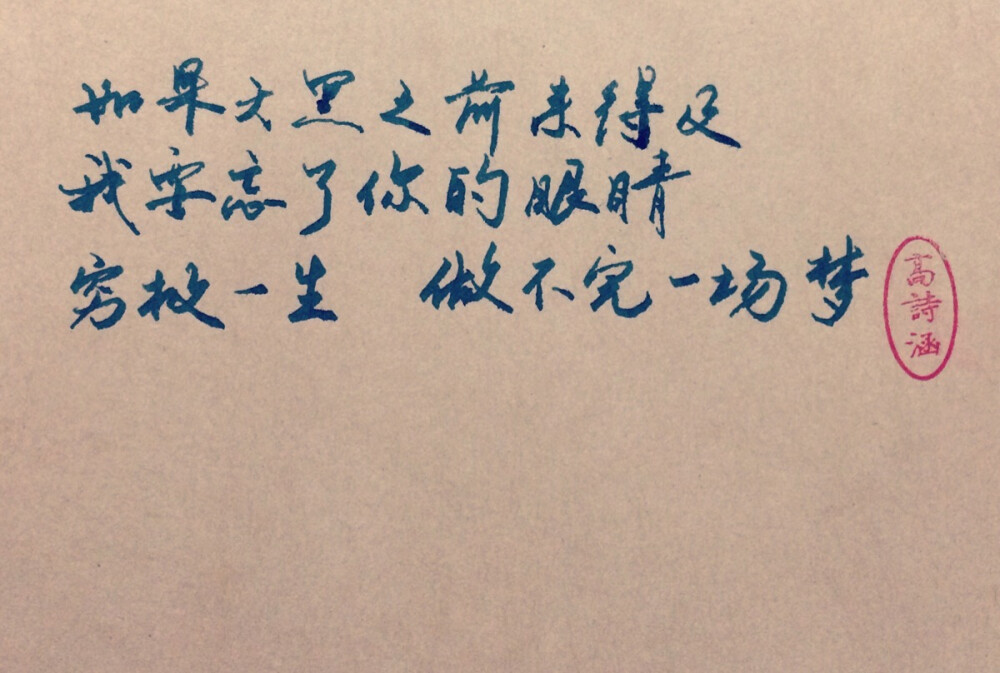 如果天黑之前来得及
我要忘了你的眼睛
穷极一生 做不完一场梦
高詩涵